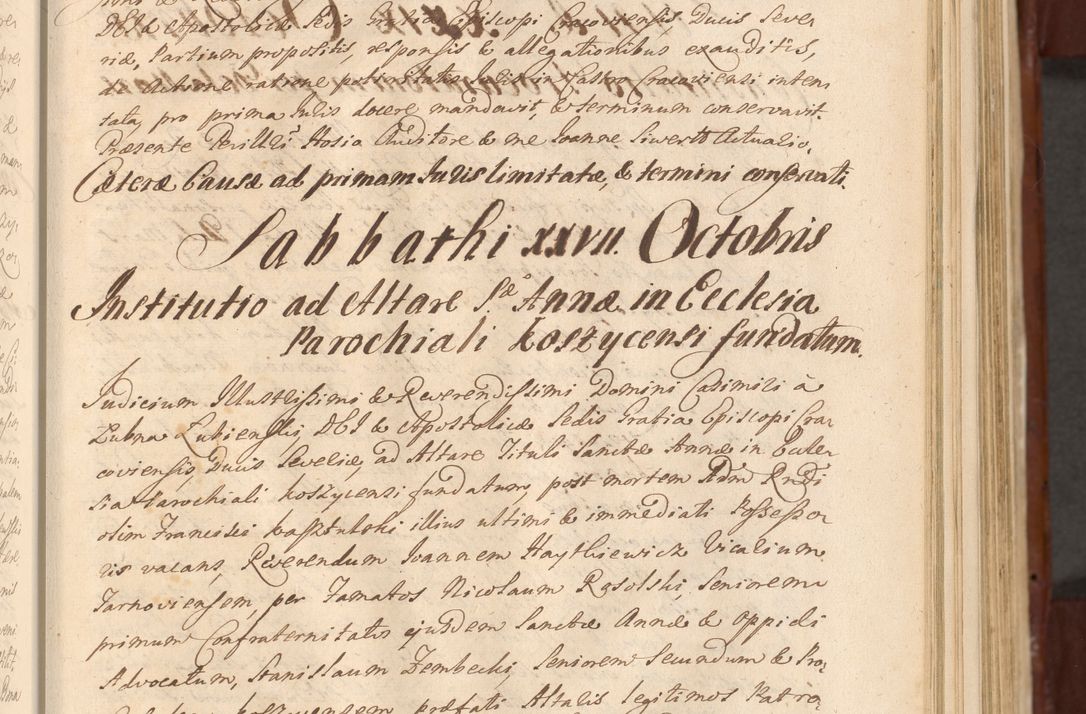 DEI & Apostolicæ Sedis Gratia Episcopi Cracoviensis Ducis Seve-
riæ, Partium propositis, responsis & allegationibus exauditis,
in Castro Cracoviensi inten
tata, pro prima Iuris docere mandavit, & terminum conservavit.
Præsente Perillri Hosio Auditore & me Ioanne Siwerth Actuario.
Cæteræ Causæ ad primam Iuris limitatæ, & termini conservati.
Sabbathi XXVII. Octobris
Institutio ad Altare S.æ Annæ in Ecclesia
Parochiali Koszycensi fundatum.
Iudicium Illustrissimi & Reverendissimi Domini Casimiri à
Łubna Łubienski, DEI & Apostolicæ Sedis Gratia Episcopi Cra-
coviensis, Ducis Severiæ, ad Altare Tituli Sanctæ Annæ in Eccle-
sia Parochiali Koszycensi fundatum, post mortem Adm Rndi
olim Francisci illius ultimi & immediati Possesso-
ris vacans, Reverendum Ioannem Haythiewicz Vicarium
Tarnoviensem, per Famatos Nicolaum Rosolski, Seniorem
primum Confraternitatis ejusdem Sanctæ Annæ & oppidi
Advocatum, Stanislaum Zembecki, Seniorem Secundum & Pro-
Koszycensem præfati Altaris legitimos Patro-